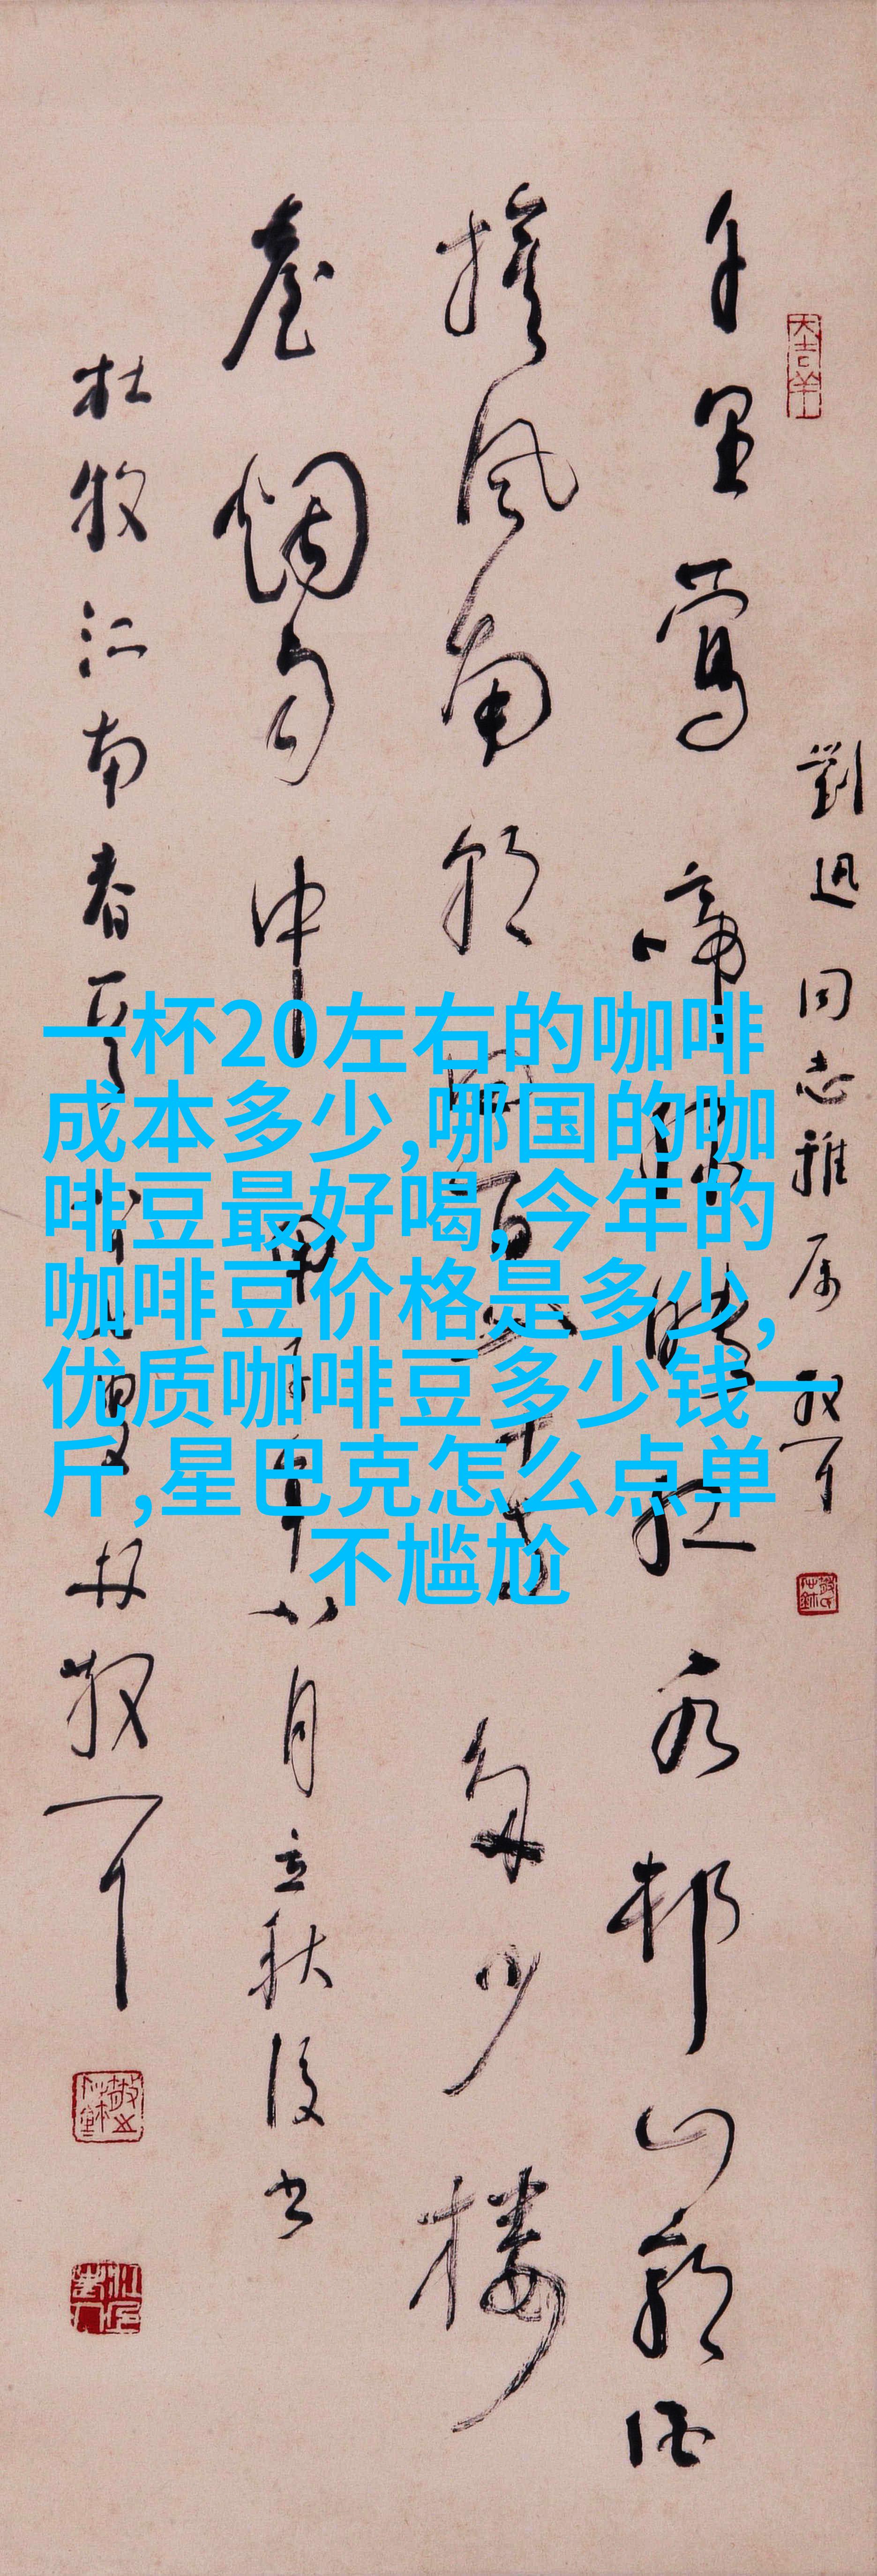 劉迅同志雅属 散耳
千里鶯啼綠映红水村山郭酒
旗风南朝四百八十寺多少楼
臺烟雨中 年八月立秋後书
杜牧江南春 林散耳
一杯20左右的咖啡
成本多少,哪国的咖
啡豆最好喝,今年的
咖啡豆价格是多少,
优质咖啡豆多少钱一
斤,星巴克怎么点单
不尴尬